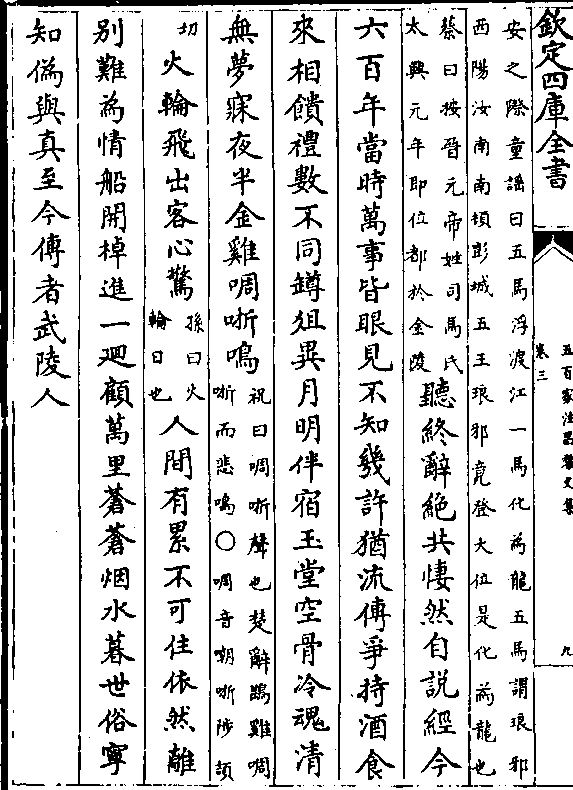 欽定四庫全書
五百家注昌黎文集
卷三
九
安之際童謡曰五馬浮渡江一馬化為龍五馬謂琅邪
西陽汝南南頓彭城五王琅邪竟登大位是化為龍也
蔡曰按晉元帝姓司馬氏
太興元年即位都於金陵
聽終辭絶共悽然自説經今
六百年當時萬事皆眼見不知幾許猶流傳爭持酒食
來相饋禮數不同罇俎異月明伴宿玉堂空骨冷魂清
無夢寐夜半金雞啁哳鳴
祝曰啁哳聲也楚辭鵾雞啁
哳而悲鳴○啁音嘲哳陟詰
切
火輪飛出客心驚
孫曰火
輪日也
人間有累不可住依然離
别難為情船開棹進一廻顧萬里蒼蒼烟水暮世俗寧
知偽與真至今傳者武陵人